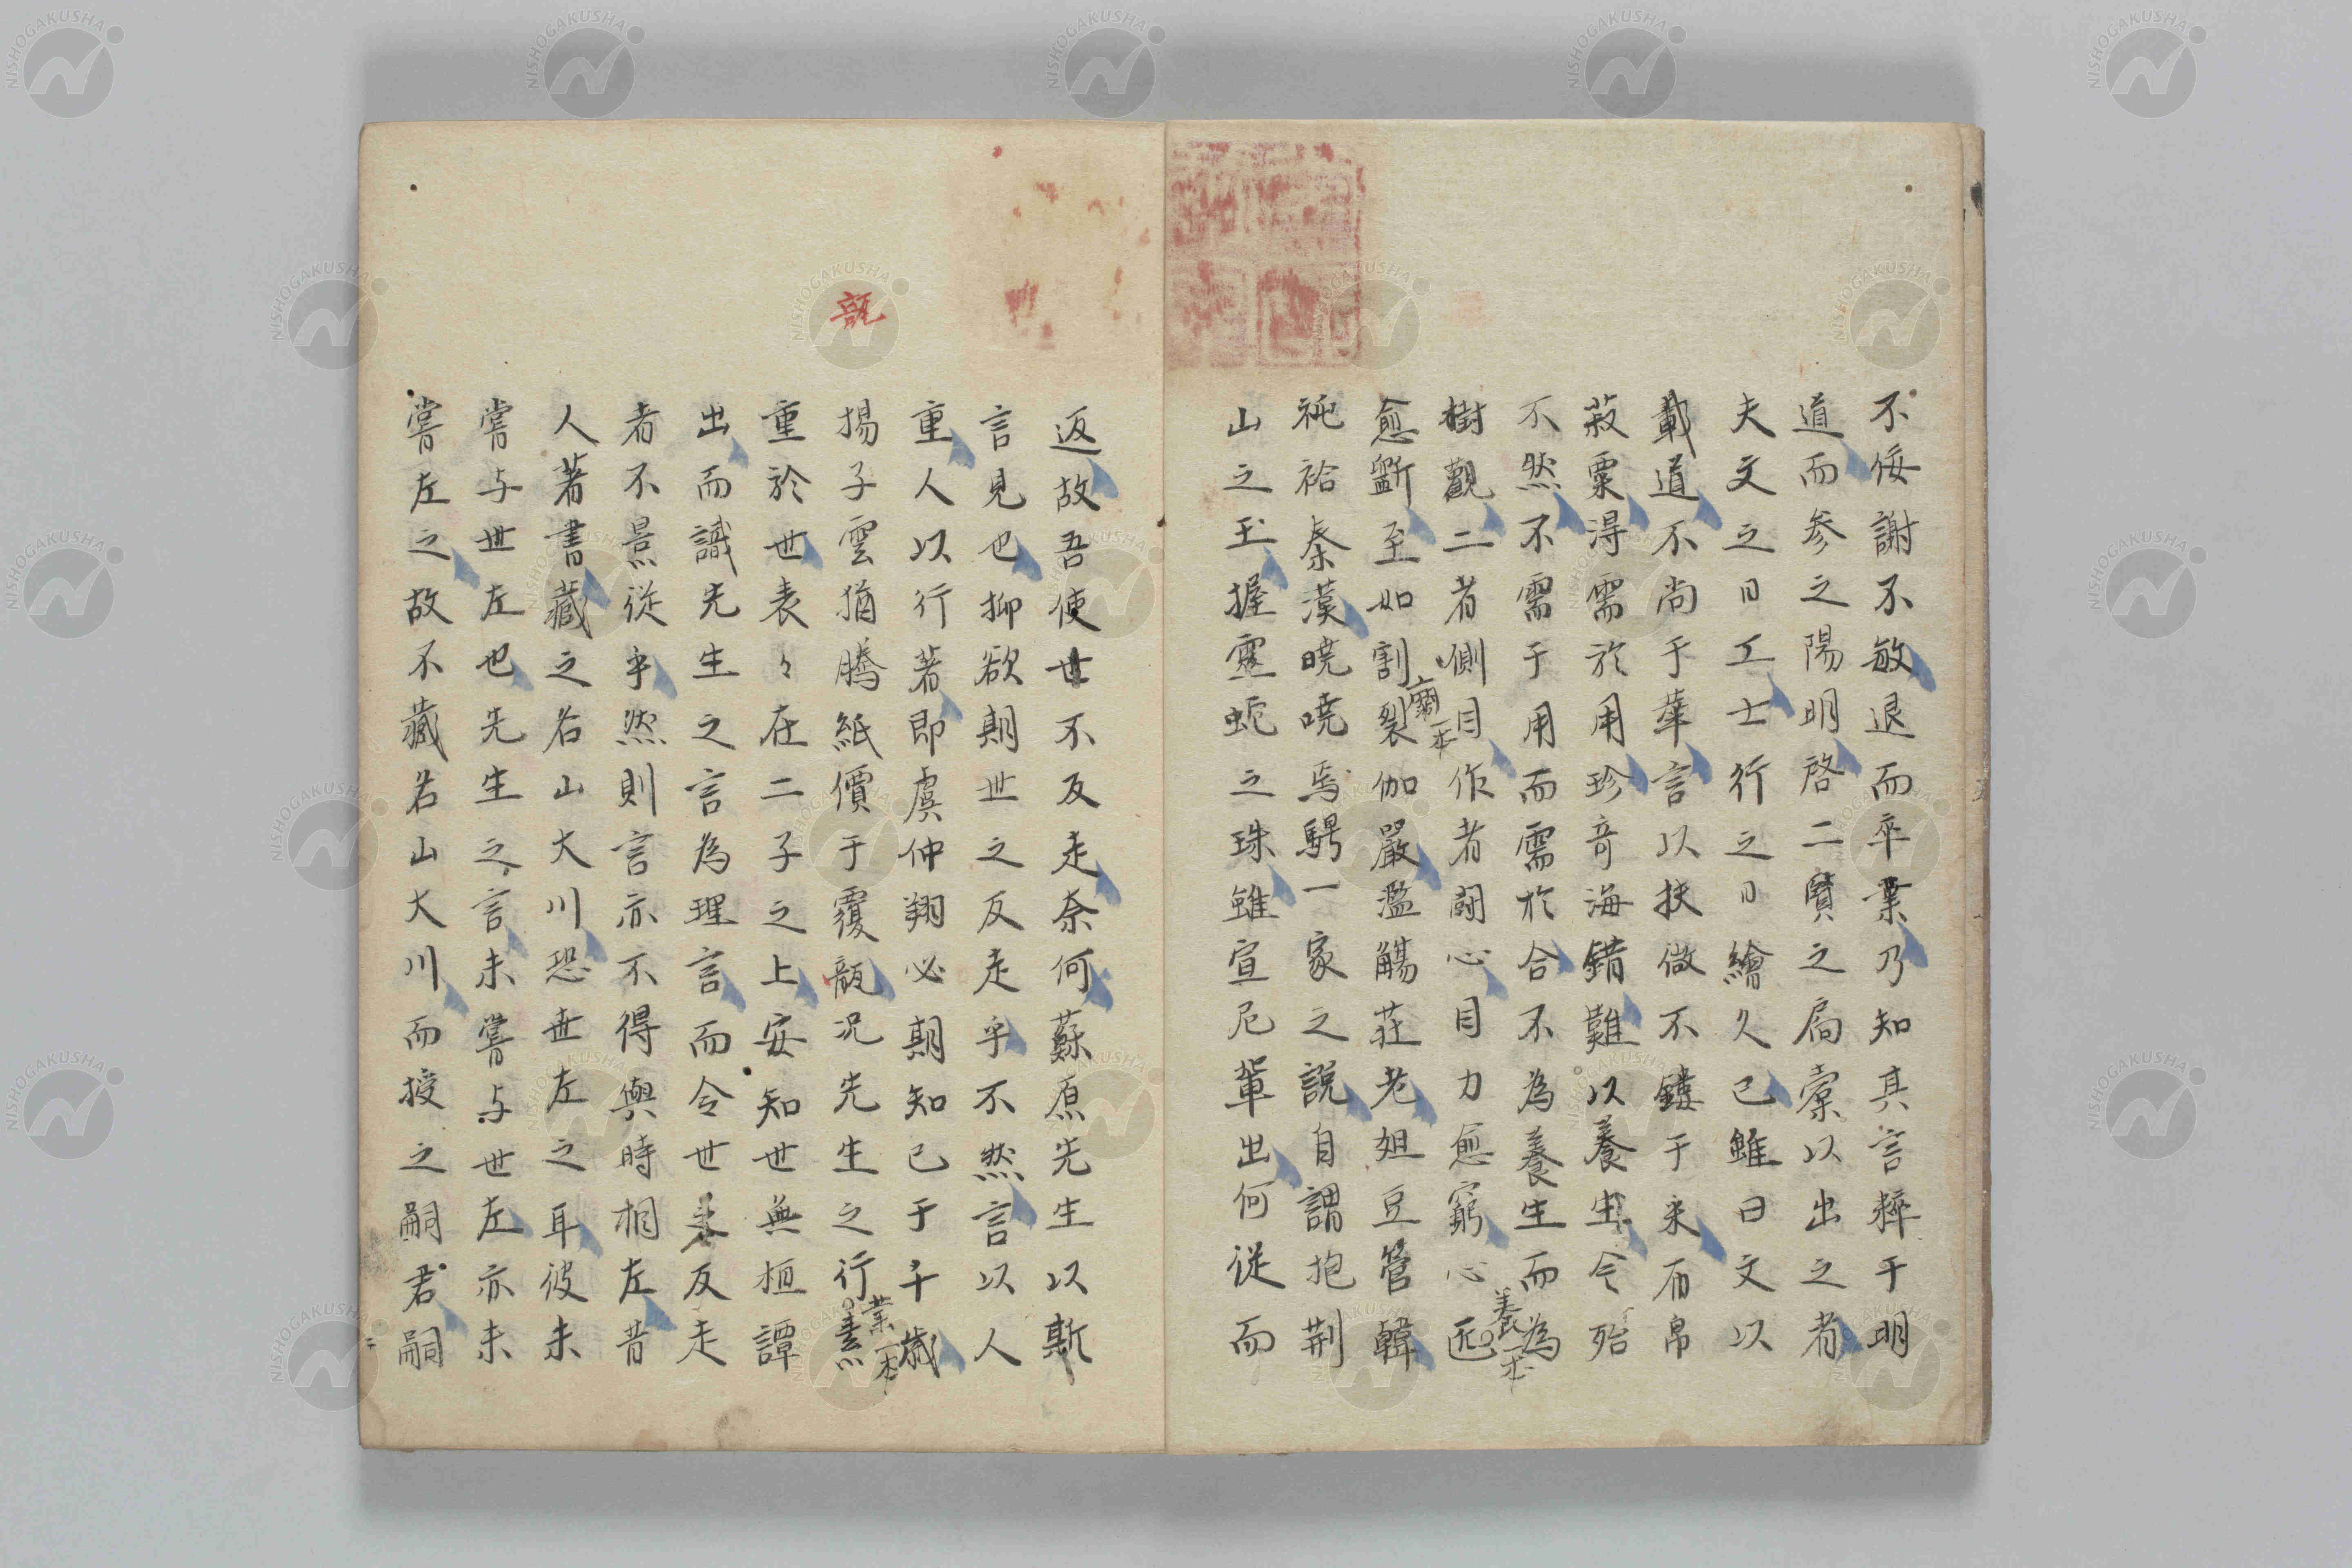 不佞謝不敏退而卒業乃知其言粹于明
道而参之陽明啓二賢之扃橐以出之者
夫文之日工士行之日繪久已雖曰文以
載道不尚于華言以扶微不鏤于采布帛
菽粟淂需於用珍奇海錯難以養生令殆
不然不需于用而需於合不為養生而為
養一本
樹觀二者側目作者鬪心目力愈窮心
愈斵至如割裂伽嚴濫觴荘老俎豆管韓
一本
秦漢曉曉焉騁一家之説自謂抱荆
山之玉握靈蛇之珠雖宣尼輩出何従而
返故吾使世不反走奈何蘇原先生以斯
言見也抑欲期世之反走乎不然言以人
重人以行著即虞仲翔必期知已于千歳
揚子雲猶騰紙價于覆瓿况先生之行
業一本
重於世表々在二子之上安知世無桓譚
出而識先生之言為理言而令世反走
者不景従乎然則言亦不得與時相左昔
人著書藏之名山大川恐世左之耳彼未
嘗与世左也先生之言未嘗与世左亦未
嘗左之故不藏名山大川而授之嗣君嗣
瓿
NISHOGAKUSHA